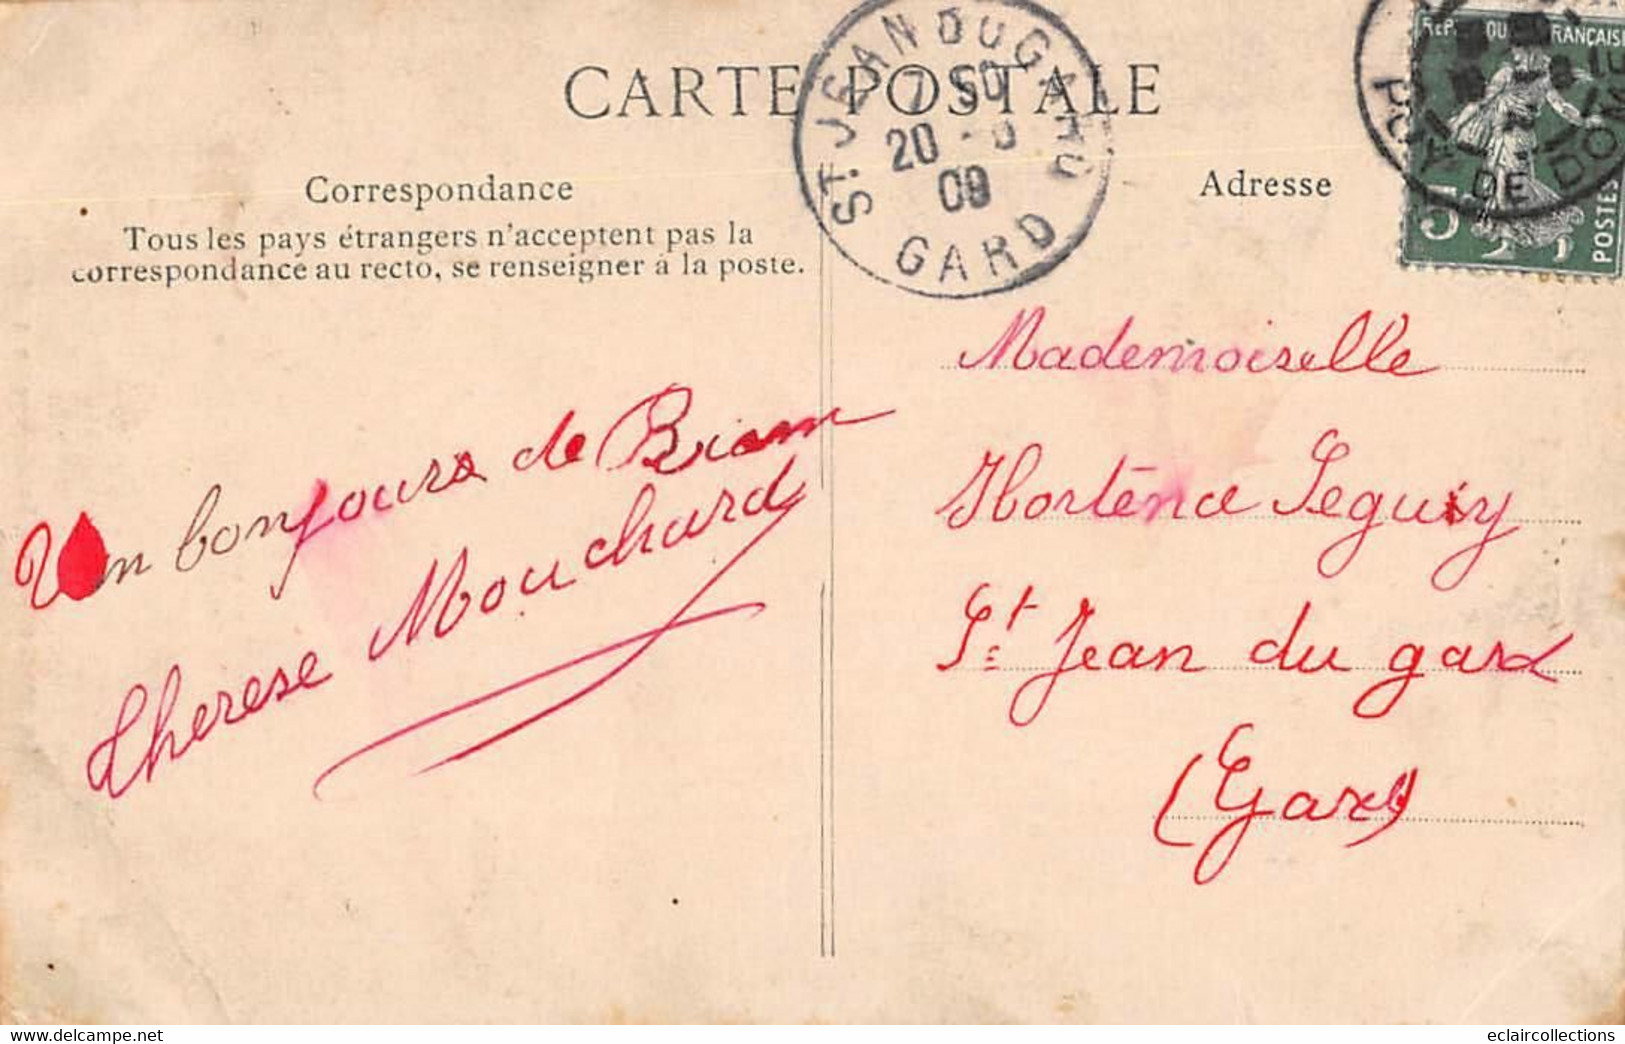 CARTE POSTALE
ST. JEAN DU GARD
7 50
20
09
GARD
REP FRANÇAISE
POSTES
5
DE DOM
Correspondance
Tous les pays étrangers n'acceptent pas la
correspondance au recto, se renseigner à la poste.
Adresse
Un bonjours de Riom
Therese Mouchard
Mademoiselle
Hortence Seguiy
St Jean du gard
(Gard)
www.delcampe.net
eclaircollections